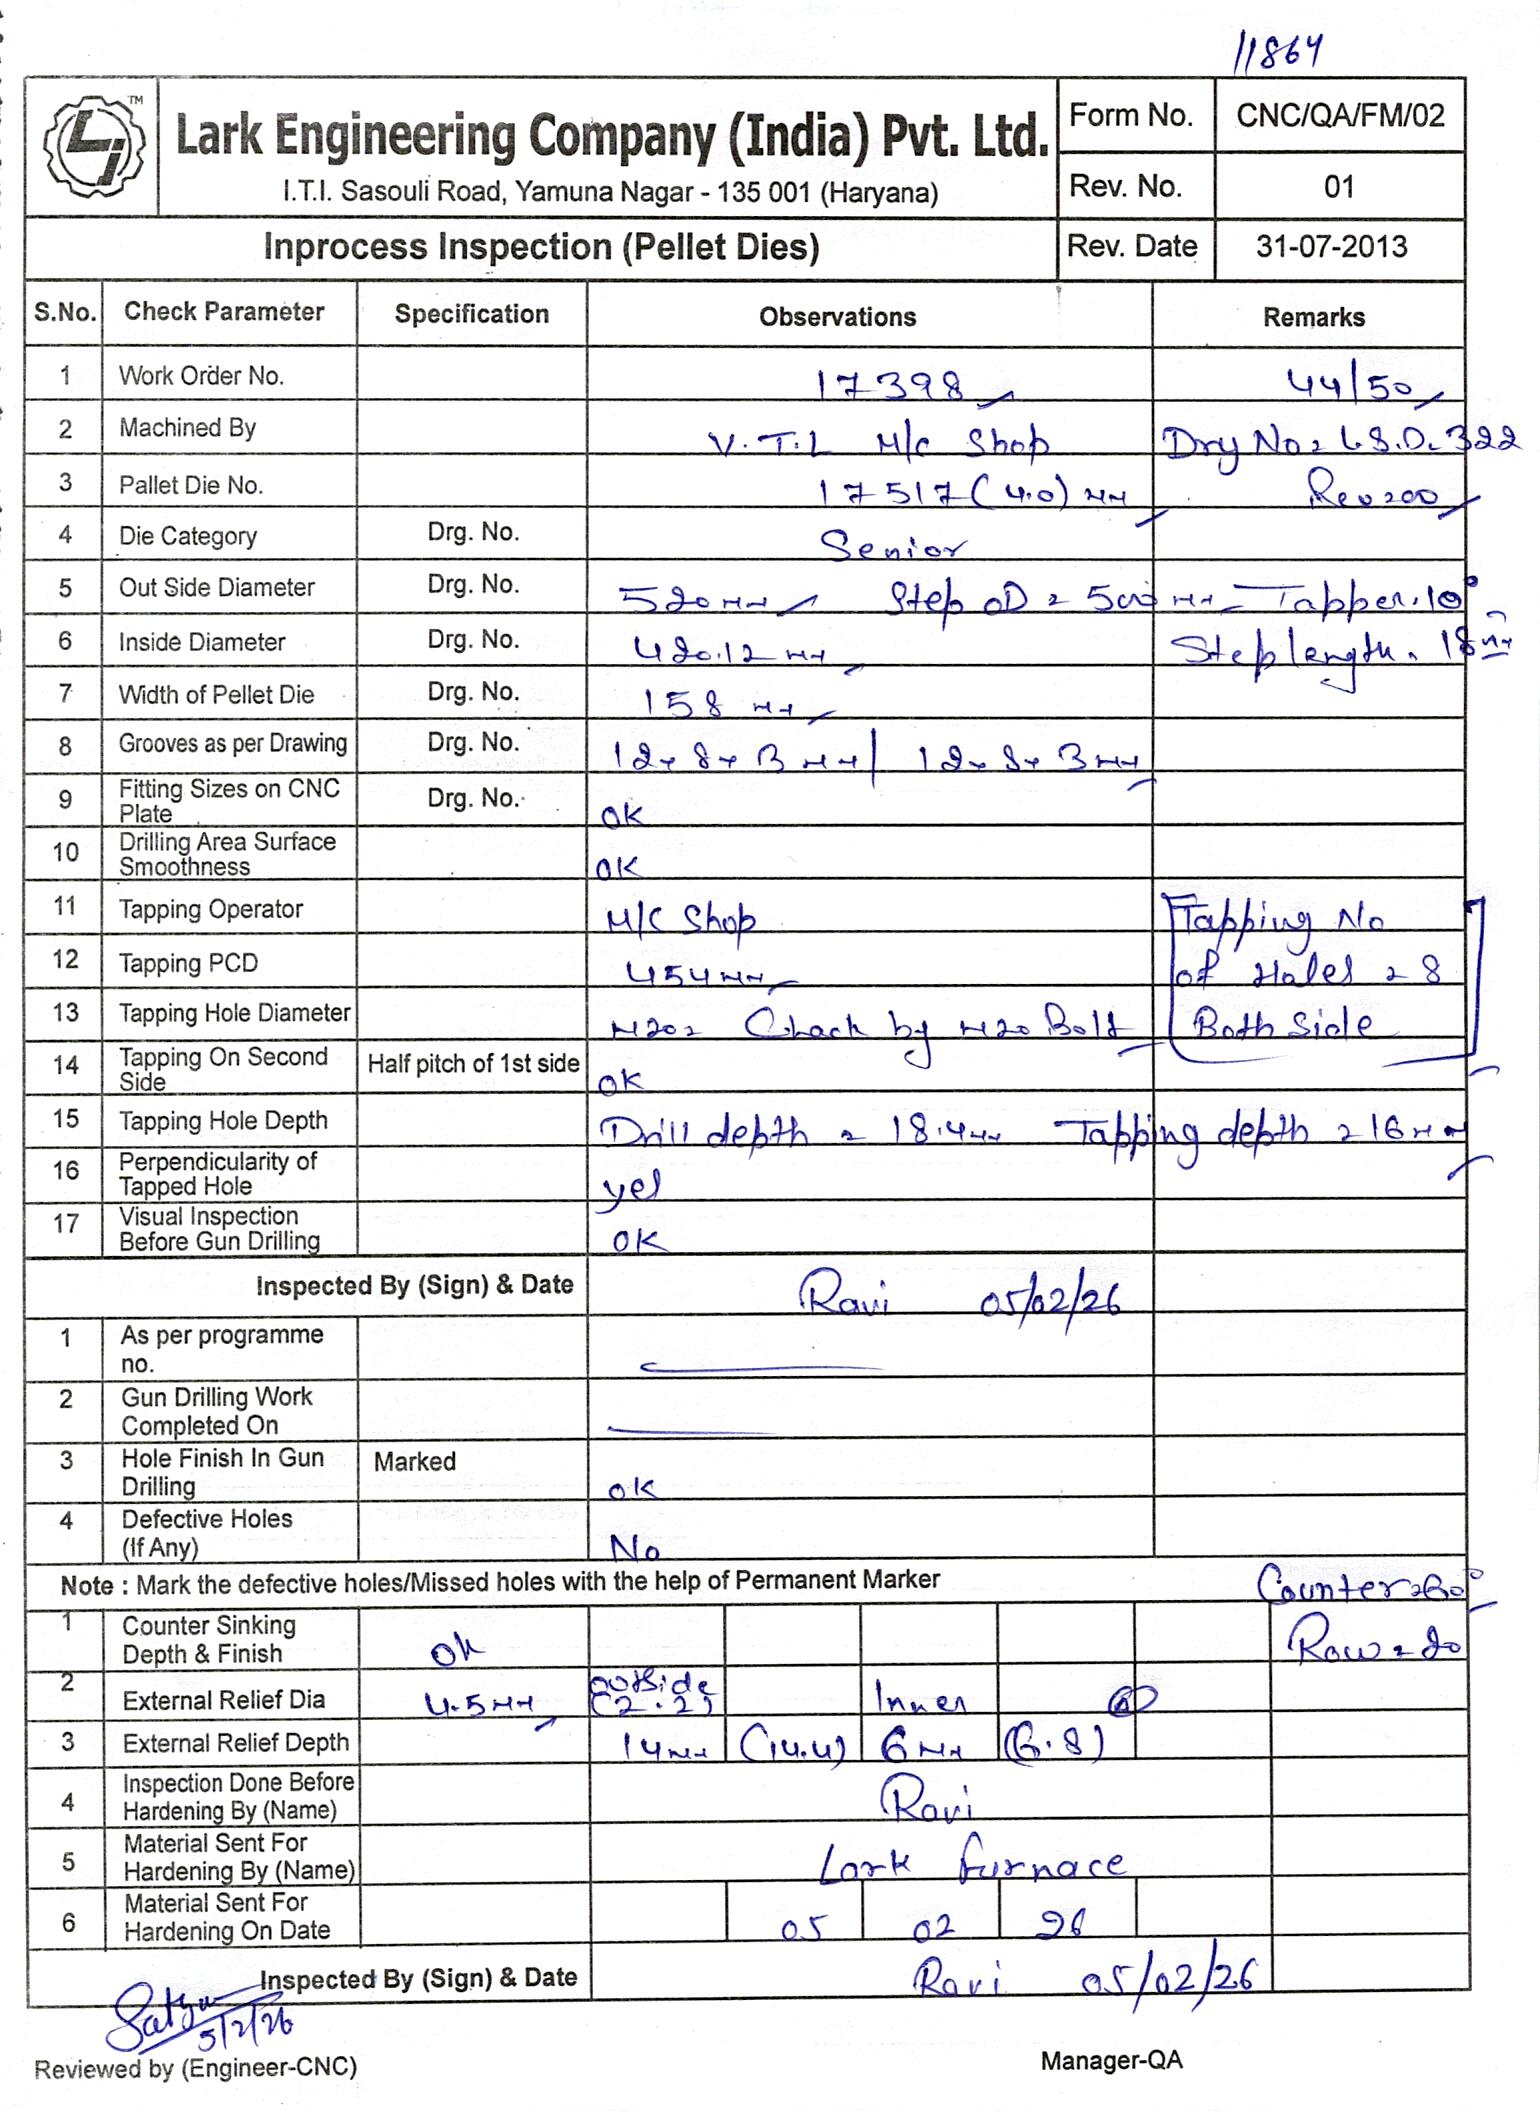 11864
LI TM
Lark Engineering Company (India) Pvt. Ltd.
I.T.I. Sasouli Road, Yamuna Nagar - 135 001 (Haryana)
Form No. CNC/QA/FM/02
Rev. No. 01
Inprocess Inspection (Pellet Dies) Rev. Date 31-07-2013
S.No. Check Parameter Specification Observations Remarks
1 Work Order No. 17398 44/50
2 Machined By V.T.L M/c Shop Drg No = L.S.D. 322
3 Pallet Die No. 17517 (4.0) mm Rev = 00
4 Die Category Drg. No. Senior
5 Out Side Diameter Drg. No. 520 mm Step OD = 500 mm Tapper. 10°
6 Inside Diameter Drg. No. 420.12 mm Step length. 18 mm
7 Width of Pellet Die Drg. No. 158 mm
8 Grooves as per Drawing Drg. No. 12 x 8 x 3 mm / 12 x 8 x 3 mm
9 Fitting Sizes on CNC Plate Drg. No. OK
10 Drilling Area Surface Smoothness OK
11 Tapping Operator M/C Shop Tapping No
12 Tapping PCD 454 mm of Holes = 8
13 Tapping Hole Diameter M20 = Chack by M20 Bolt Both Side
14 Tapping On Second Side Half pitch of 1st side OK
15 Tapping Hole Depth Drill depth = 18.4 mm Tapping depth = 16 mm
16 Perpendicularity of Tapped Hole yes
17 Visual Inspection Before Gun Drilling OK
Inspected By (Sign) & Date Ravi 05/02/26
1 As per programme no.
2 Gun Drilling Work Completed On
3 Hole Finish In Gun Drilling Marked OK
4 Defective Holes (If Any) No
Note : Mark the defective holes/Missed holes with the help of Permanent Marker Counter = 60°
1 Counter Sinking Depth & Finish OK Row = 20
2 External Relief Dia 4.5 mm outside (2.2) Inner
3 External Relief Depth 14 mm (14.4) 6 mm (6.8)
4 Inspection Done Before Hardening By (Name) Ravi
5 Material Sent For Hardening By (Name) Lark furnace
6 Material Sent For Hardening On Date 05 02 26
Inspected By (Sign) & Date Ravi 05/02/26
5/2/26
Reviewed by (Engineer-CNC) Manager-QA